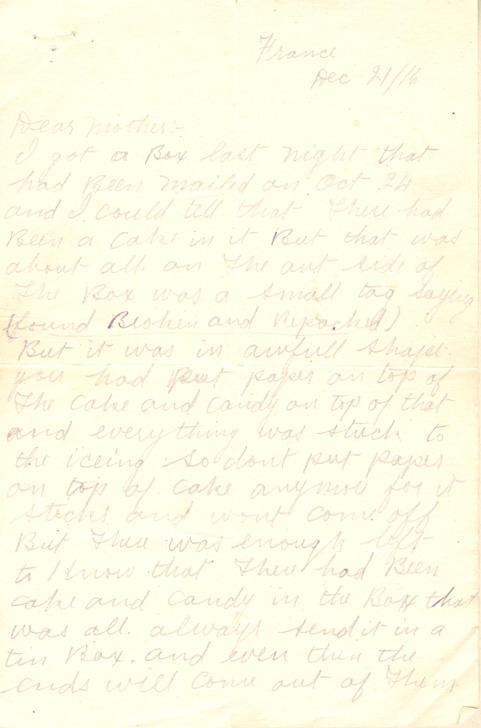 France
Dec 21/16
Dear Mother:-
I got a Box last night that
had Been mailed on Oct 24
and I could tell that There had
Been a Cake in it But that was
about all on The out side of
The Box was a small tag saying
(found Broken and Repacked)
But it was in awfull shape
you had Put paper on top of
The Cake and Candy on top of that
and everything was stuck to
the iceing so dont put paper
on top of Cake anymore for it
sticks and wont come off
But There was enough left
to Know that There had Been
cake and Candy in the Box that
was all. always send it in a
tin Box. and even then the
ends will come out of Them